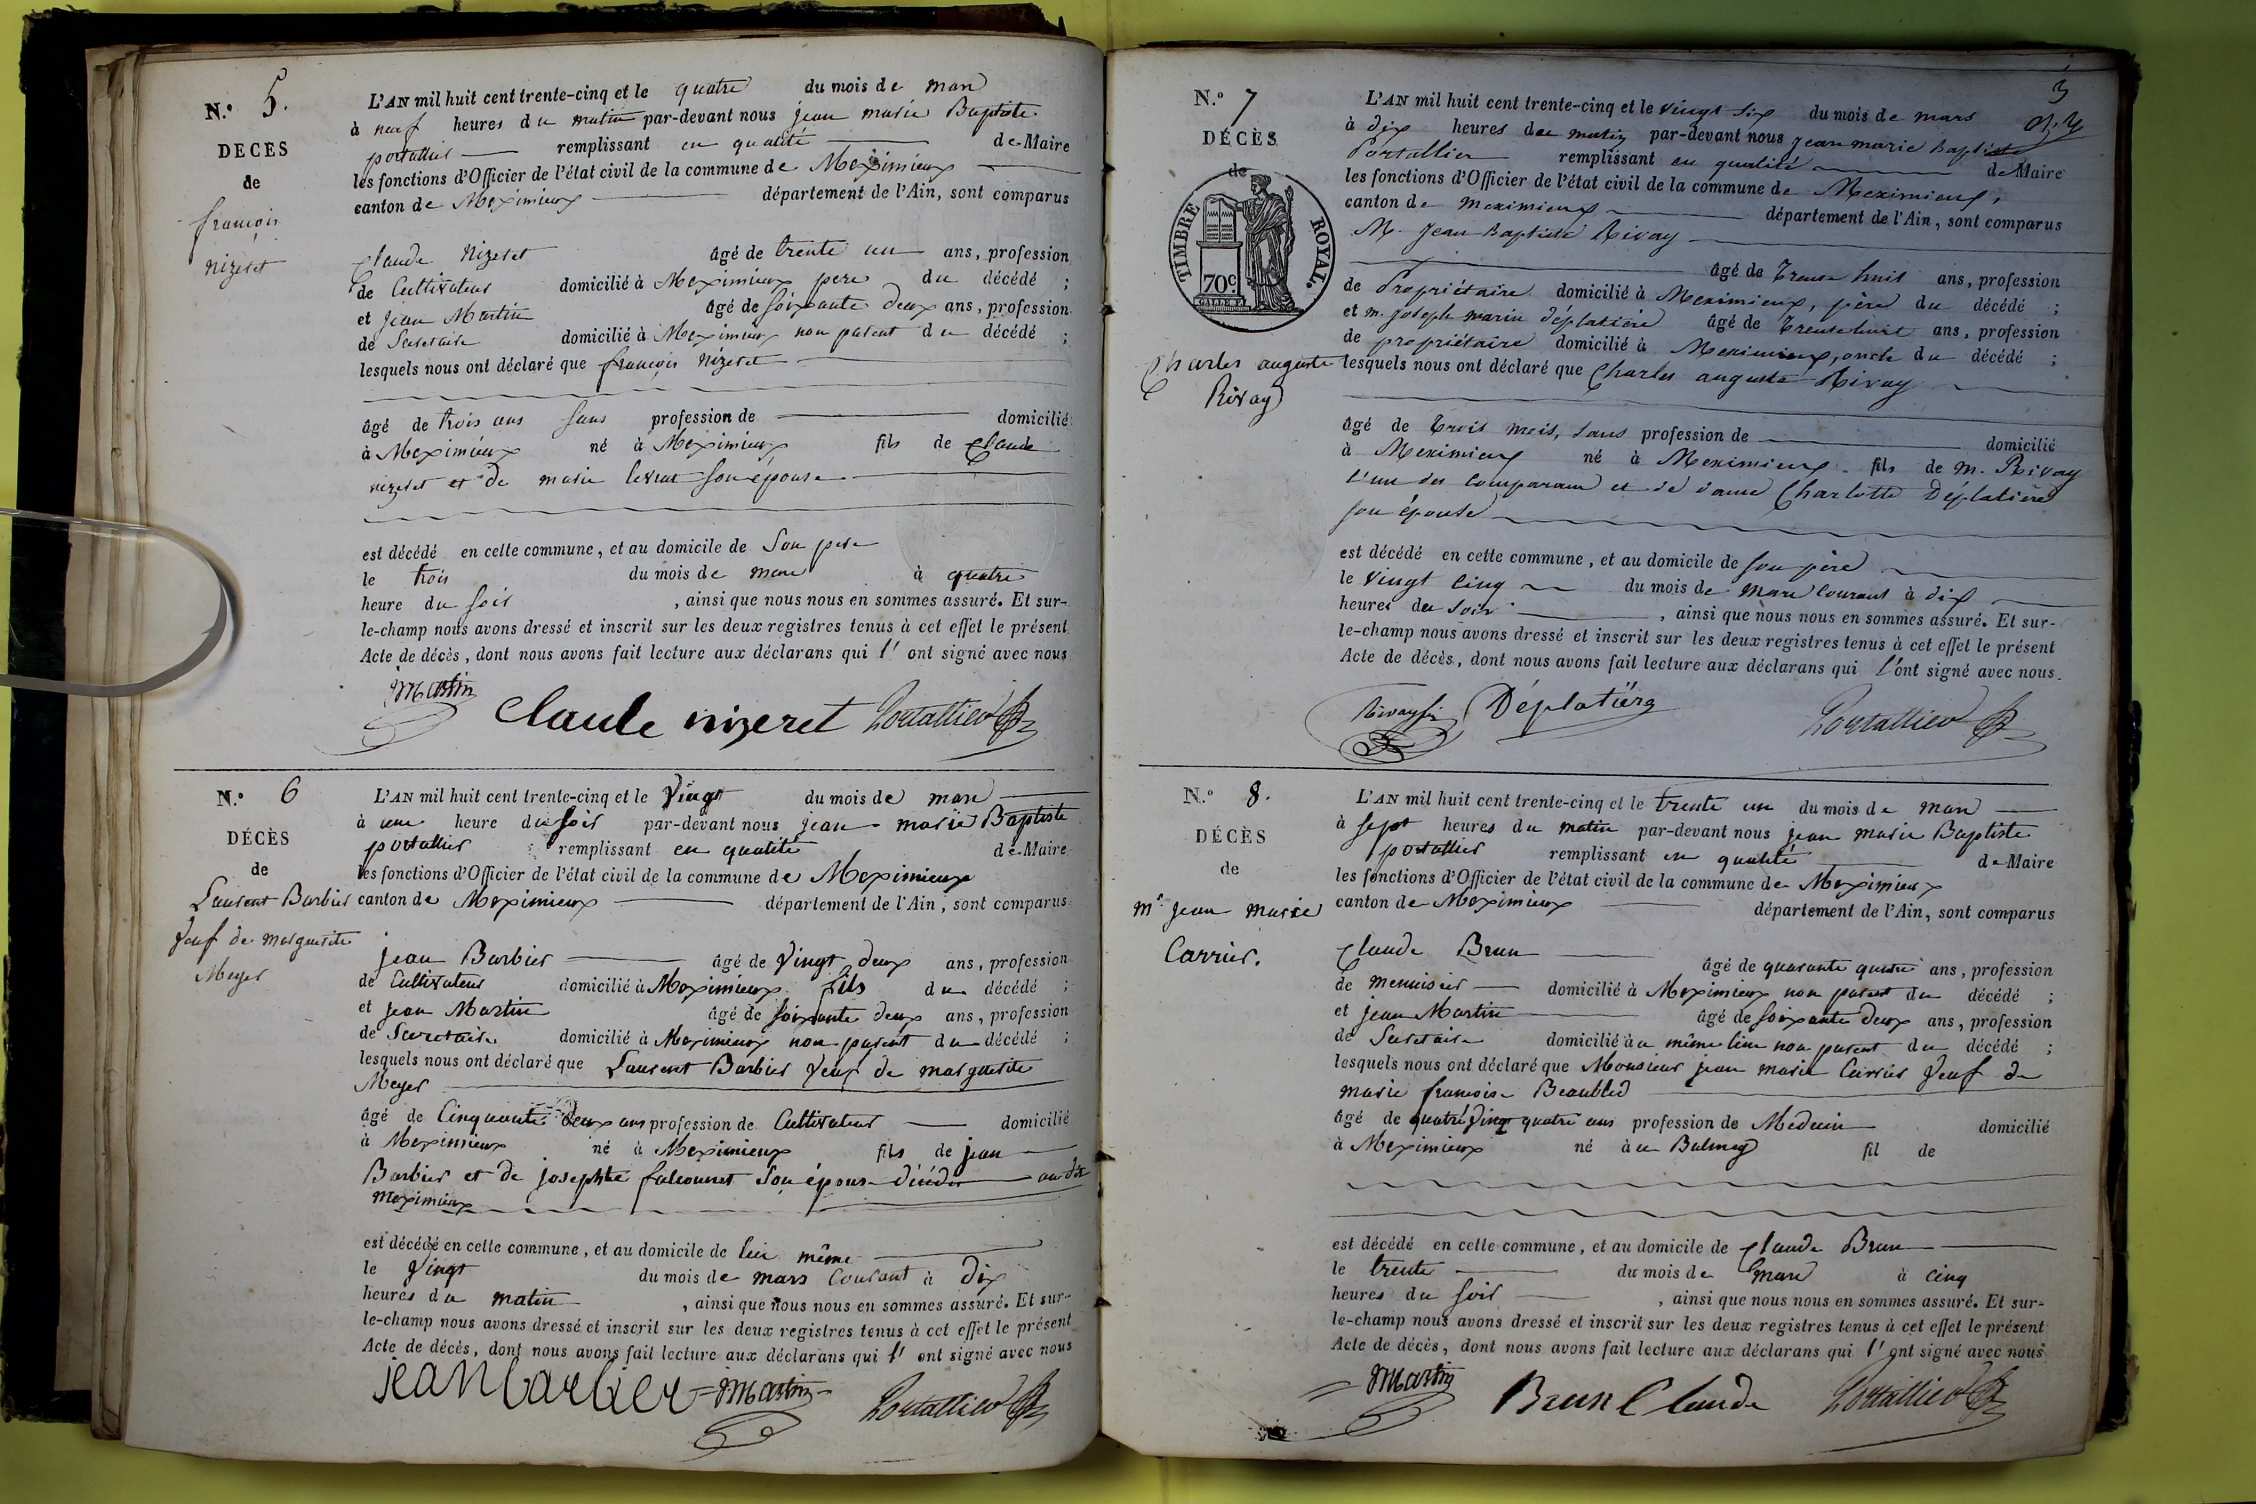 N.° 5.
DÉCÈS
de
françois
nizeret
L'AN mil huit cent trente-cinq et le quatre du mois de mars
à neuf heures du matin par-devant nous jean marie Baptiste
portallier remplissant en qualité de Maire
les fonctions d'Officier de l'état civil de la commune de Meximieux
canton de Meximieux département de l'Ain, sont comparus
Claude Nizeret âgé de trente un ans, profession
de Cultivateur domicilié à Meximieux pere du décédé ;
et jean Martin âgé de soixante deux ans, profession
de Secretaire domicilié à Meximieux non parent du décédé ;
lesquels nous ont déclaré que françois nizeret
âgé de trois ans sans profession de domicilié
à Meximieux né à Meximieux fils de Claude
nizeret et de marie levrat son épouse
est décédé en cette commune, et au domicile de Son pere
le trois du mois de mars à quatre
heure du soir , ainsi que nous nous en sommes assuré. Et sur-
le-champ nous avons dressé et inscrit sur les deux registres tenus à cet effet le présent
Acte de décès, dont nous avons fait lecture aux déclarans qui l' ont signé avec nous
Martin Claude nizeret Portallier
N.° 6
DÉCÈS
de
Laurent Barbier
Veuf de marguerite
Meyer
L'AN mil huit cent trente-cinq et le Vingt du mois de mars
à une heure du soir par-devant nous jean marie Baptiste
portallier remplissant en qualité de Maire
les fonctions d'Officier de l'état civil de la commune de Meximieux
canton de Meximieux département de l'Ain, sont comparus
jean Barbier âgé de Vingt deux ans, profession
de Cultivateur domicilié à Meximieux fils du décédé ;
et jean Martin âgé de soixante deux ans, profession
de Secretaire domicilié à Meximieux non parent du décédé ;
lesquels nous ont déclaré que Laurent Barbier Veuf de marguerite
Meyer
âgé de Cinquante deux ans profession de Cultivateur domicilié
à Meximieux né à Meximieux fils de jean
Barbier et de josephte falconnet Son épouse décédés au dit
Meximieux
est décédé en cette commune, et au domicile de lui même
le Vingt du mois de mars courant à dix
heures du matin , ainsi que nous nous en sommes assuré. Et sur-
le-champ nous avons dressé et inscrit sur les deux registres tenus à cet effet le présent
Acte de décès, dont nous avons fait lecture aux déclarans qui l' ont signé avec nous
jean barbier Martin Portallier
3
N.° 7
DÉCÈS
de
TIMBRE ROYAL.
70c.
Charles auguste
Rivay
L'AN mil huit cent trente-cinq et le vingt six du mois de mars
à dix heures du matin par-devant nous jean marie Baptiste
Portallier remplissant en qualité de Maire
les fonctions d'Officier de l'état civil de la commune de Meximieux,
canton de meximieux département de l'Ain, sont comparus
M. Jean Baptiste Rivay
âgé de Trente huit ans, profession
de Propriétaire domicilié à Meximieux, père du décédé ;
et m. joseph marin Déplatière âgé de Trente huit ans, profession
de propriétaire domicilié à Meximieux, oncle du décédé ;
lesquels nous ont déclaré que Charles auguste Rivay
âgé de Trois mois, sans profession de domicilié
à Meximieux né à Meximieux fils de m. Rivay
l'un des comparans et de dame Charlotte Déplatière
son épouse
est décédé en cette commune, et au domicile de son père
le vingt cinq du mois de mars courant à dix
heures du soir , ainsi que nous nous en sommes assuré. Et sur-
le-champ nous avons dressé et inscrit sur les deux registres tenus à cet effet le présent
Acte de décès, dont nous avons fait lecture aux déclarans qui l'ont signé avec nous.
Rivay Déplatière Portallier
N.° 8.
DÉCÈS
de
Mr. jean marie
Carrier.
L'AN mil huit cent trente-cinq et le trente un du mois de mars
à sept heures du matin par-devant nous jean marie Baptiste
portallier remplissant en qualité de Maire
les fonctions d'Officier de l'état civil de la commune de Meximieux
canton de Meximieux département de l'Ain, sont comparus
Claude Brun âgé de quarante quatre ans, profession
de menuisier domicilié à Meximieux non parent du décédé ;
et jean Martin âgé de soixante deux ans, profession
de Secretaire domicilié au même lieu non parent du décédé ;
lesquels nous ont déclaré que Monsieur jean marie Carrier Veuf de
marie françoise Beaubled
âgé de quatre vingt quatre ans profession de Medecin domicilié
à Meximieux né au Balmey fil de
est décédé en cette commune, et au domicile de Claude Brun
le trente du mois de mars à cinq
heures du soir , ainsi que nous nous en sommes assuré. Et sur-
le-champ nous avons dressé et inscrit sur les deux registres tenus à cet effet le présent
Acte de décès, dont nous avons fait lecture aux déclarans qui l' ont signé avec nous
Martin Brun Claude Portallier